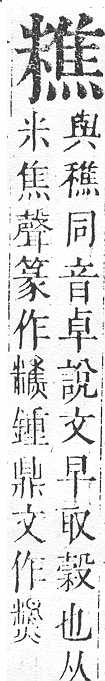 糕
與穛同音卓說文早取穀也从
米焦聲篆作𥽿鍾鼎文作